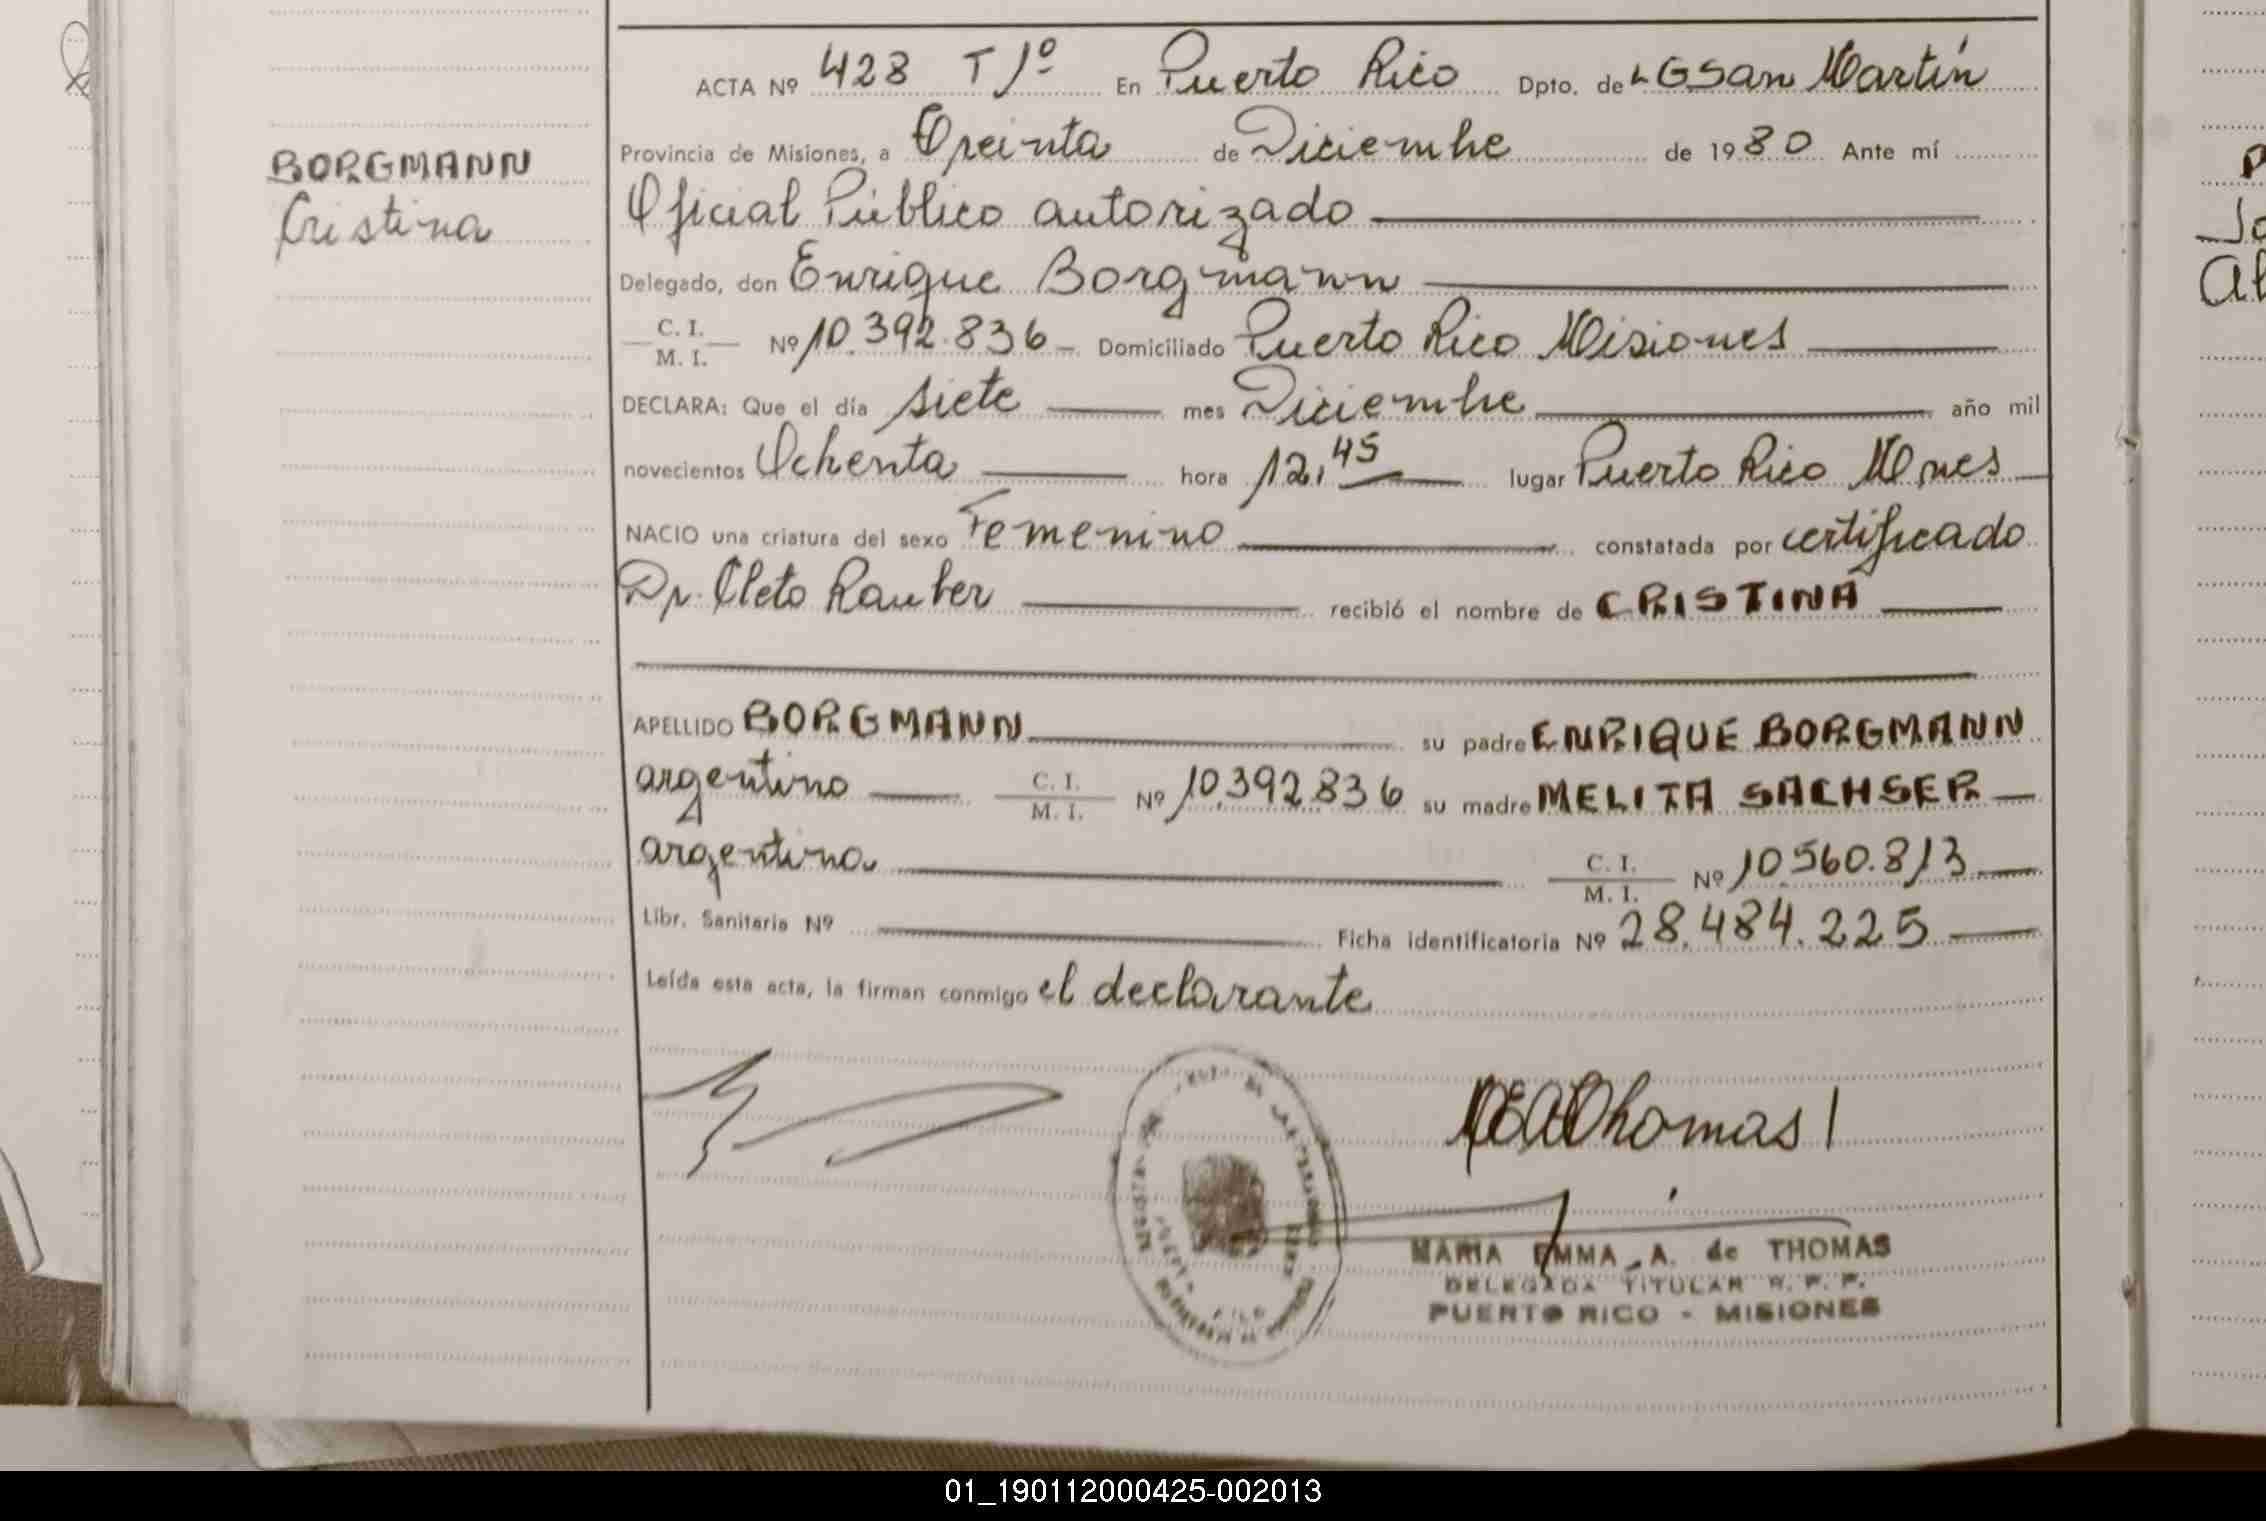 BORGMANN
Cristina
ACTA Nº 428 T 1º En Puerto Rico Dpto. de LGSan Martín
Provincia de Misiones, a Treinta de Diciembre de 1980 Ante mí
Oficial Público autorizado
Delegado, don Enrique Borgmann
C. I.
M. I.
Nº 10.392.836 Domiciliado Puerto Rico Misiones
DECLARA: Que el día siete mes Diciembre año mil
novecientos Ochenta hora 12,45 lugar Puerto Rico Mnes
NACIO una criatura del sexo Femenino constatada por certificado
Dr. Cleto Rauber recibió el nombre de CRISTINA
APELLIDO BORGMANN su padre ENRIQUE BORGMANN
argentino C. I.
M. I. Nº 10.392.836 su madre MELITA SACHSER
argentina C. I.
M. I. Nº 10.560.813
Libr. Sanitaria Nº Ficha identificatoria Nº 28.484.225
Leída esta acta, la firman conmigo el declarante
MEAThomas
MARIA EMMA A. de THOMAS
DELEGADA TITULAR R. P. P.
PUERTO RICO - MISIONES
01_190112000425-002013